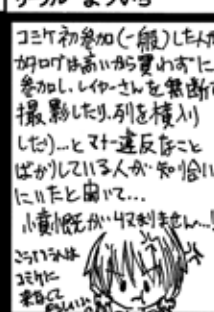 コミケ初参加(一般)した人が
カタログは高いから買わずに
参加し、レイヤーさんを無断で
撮影したり、列を横入り
したり…とマナー違反なこと
ばかりしている人が知り合い
にいたと聞いて…
小憤慨が収まりません…!
こういう人は
コミケに
来ないで